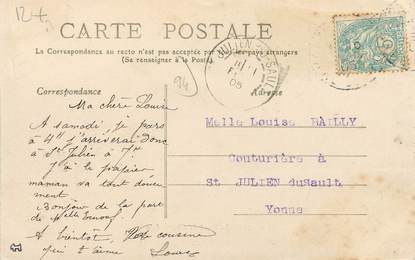 12+
CARTE POSTALE
La Correspondance au recto n'est pas acceptée par tous les pays étrangers
(Se renseigner à la Poste)
94
Correspondance
Adresse
Ma chère Louise
A samedi je pars
à 4h j'arriverai donc
à St Julien à 7h
J'ai le papier
maman va tout douce
ment
Bonjour de la part
de Melle
A bientôt, ta cousine
qui t'aime
Melle Louise BAILLY
Couturière à
St JULIEN duSault
Yonne